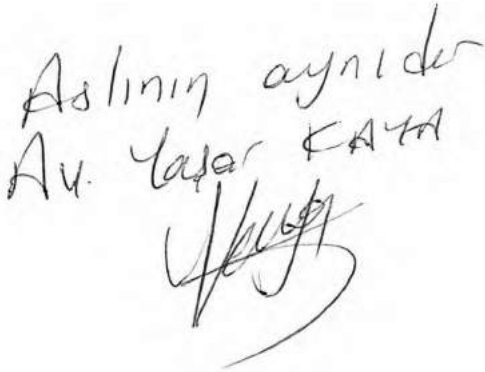 Aslının aynıdır
Av. Yaşar KAYA